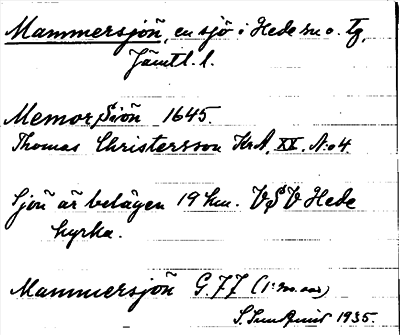 Mammersjön, en sjö i Hede sn o. tg,
Jämtl. l.
Memor Siön 1645.
Thomas Christersson KrA, XX, N:o 4.
Sjön är belägen 19 km. VSV Hede
kyrka.
Mammersjön G. 77
1935.